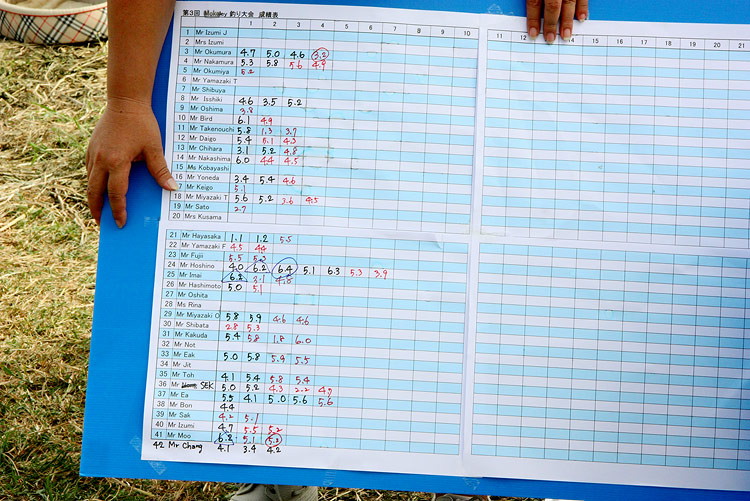 第3回 釣り大会 成績表
1 2 3 4 5 6 7 8 9 10 11 12 13 14 15 16 17 18 19 20 21
1 Mr Izumi J
2 Mrs Izumi
3 Mr Okumura 4.7 5.0 4.6 3.2
4 Mr Nakamura 5.3 5.8 5.6 4.9
5 Mr Okumiya 5.2
6 Mr Yamazaki T
7 Mr Shibuya
8 Mr Isshiki 4.6 3.5 5.2
9 Mr Oshima 3.8
10 Mr Bird 6.1 4.9
11 Mr Takenouchi 5.8 1.3 3.7
12 Mr Daigo 5.4 5.1 4.3
13 Mr Chihara 3.1 5.2 4.8
14 Mr Nakashima 6.0 4.4 4.5
15 Ms Kobayashi
16 Mr Yoneda 3.4 5.4 4.6
17 Mr Keigo 5.1
18 Mr Miyazaki T 5.6 5.2 3.6 4.5
19 Mr Sato 2.7
20 Mrs Kusama
21 Mr Hayasaka 1.1 1.2 5.5
22 Mr Yamazaki F 4.5 4.4
23 Mr Fujii 5.5 5.3
24 Mr Hoshino 4.0 6.2 6.4 5.1 6.3 5.3 3.9
25 Mr Imai 6.2 3.1 4.8
26 Mr Hashimoto 5.0 5.1
27 Mr Oshita
28 Ms Rina
29 Mr Miyazaki O 5.8 5.9 4.6 4.6
30 Mr Shibata 2.8 5.3
31 Mr Kakuda 5.4 5.8 1.8 6.0
32 Mr Not
33 Mr Eak 5.0 5.8 5.9 5.5
34 Mr Jit
35 Mr Toh 4.1 5.4 5.8 5.4
36 Mr SEK 5.0 5.2 4.3 2.2 4.9
37 Mr Ea 5.5 4.1 5.0 5.6 5.6
38 Mr Bon 4.4
39 Mr Sak 4.2 5.1
40 Mr Izumi 4.7 5.5 5.2
41 Mr Moo 6.2 5.1 5.2
42 Mr Chang 4.1 3.4 4.2